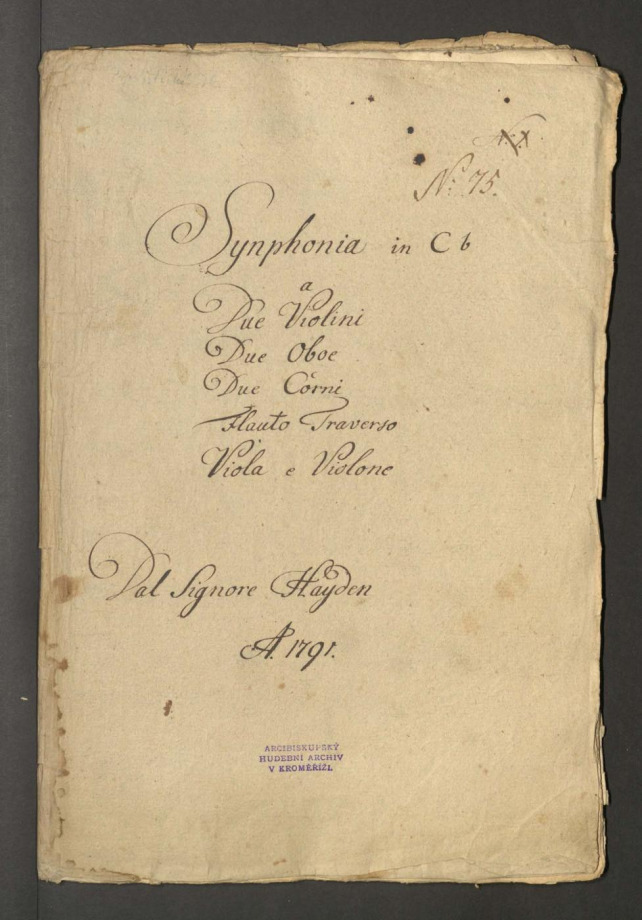 N: 75.
Synphonia in C b
a
Due Violini
Due Oboe
Due Corni
Flauto Traverso
Viola e Violone
Dal Signore Hayden
A. 1791.
ARCIBISKUPSKÝ
HUDEBNÍ ARCHIV
V KROMĚŘÍŽI.